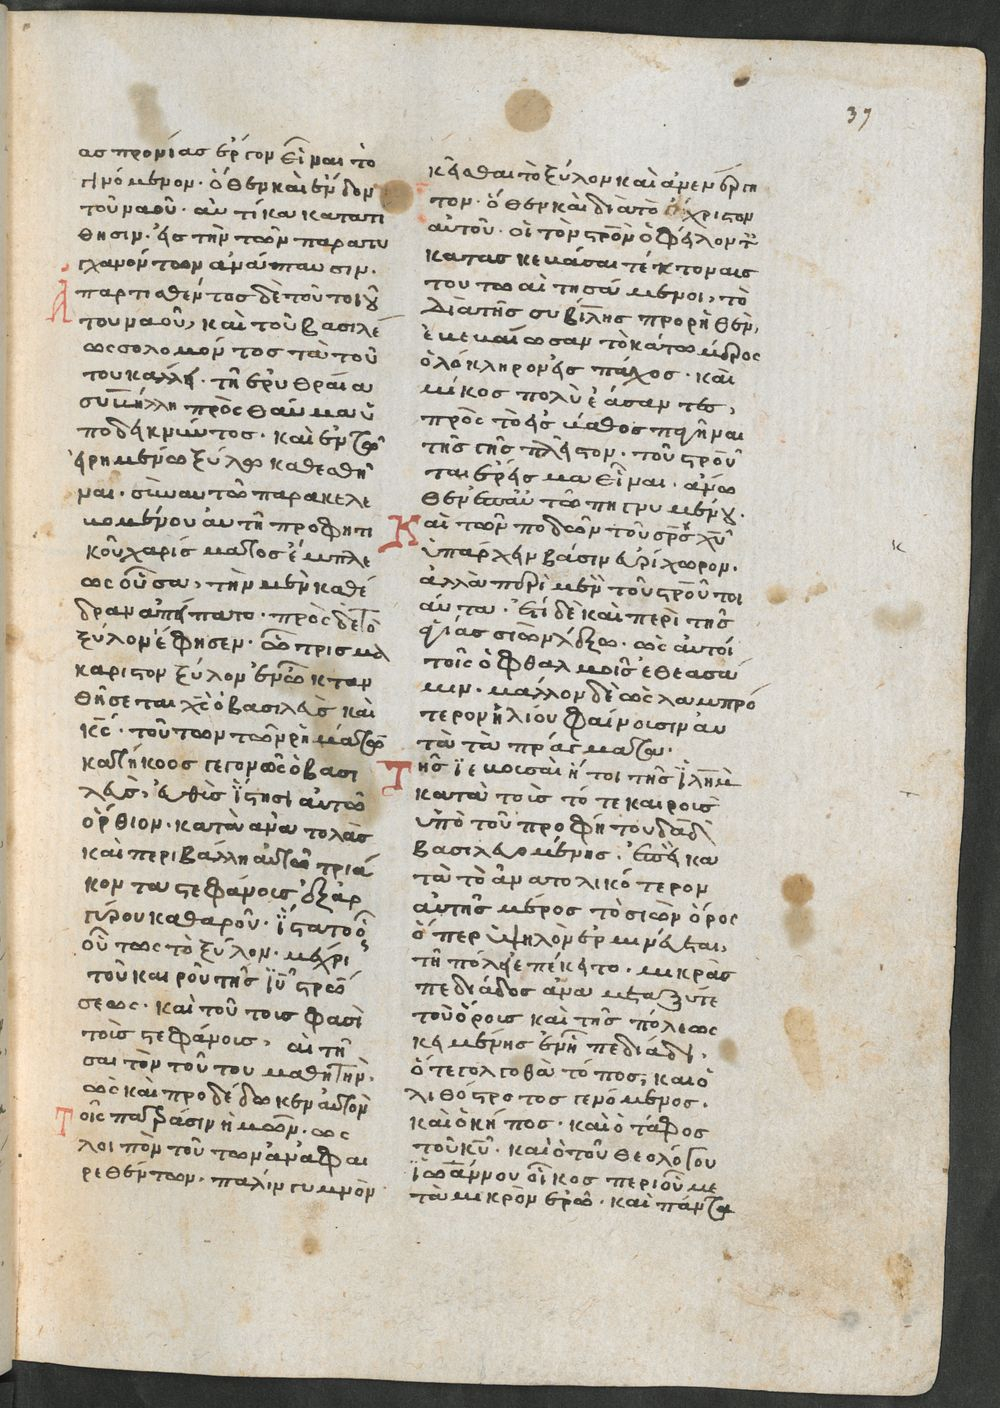 37
ας προνίας ἔργον εἶναι τὸ
γινόμενον· ὅθεν καὶ ἔνδον
τοῦ ναοῦ· αὐτίκα κατατι
θησιν· εἰς τὴν τῶν παρατυ
γχανόντων ἀνάπαυσιν·
Ἀπαρτισθέντος δὲ τοῦ τοιού
του ναοῦ, καὶ τοῦ βασιλέ
ως σολομόντος τὰ τού
του κάλλη· τῇ ἐρυθραία
συμβίλλη πρὸς θαῦμα ὑ
ποδεικνύντος· καὶ ἐν τῷ
εἰρημένω ξύλω καθεσθῆ
ναι· σὺν αὐτῶ παρακελε
υομένου αὐτῆ προφητι
κοῦ χαρίσματος ἔμπλε
ως οὖσα, τὴν μὲν καθέ
δραν ἀπείπατο· πρὸς δὲ τὸ
ξύλον ἔφησεν· ὦ τρισμα
κάριστον ξύλον ἐν ὧ κταν
θήσεται χς ὁ βασιλεὺς καὶ
κς· τούτων τῶν ῥημάτων
κατήκοος γεγονὼς ὁ βασι
λεὺς, εὐθὺς ἵστησι αὐτῶ
ὄρθιον· κατὰ ἀνατολὰς
καὶ περιβάλλη αὐτῶ τριά
κοντα στεφάνοις ἐξ ἀρ
γύρου καθαροῦ· ἵστατο
οὕτως τὸ ξύλον· μέχρι
τοῦ καιροῦ τῆς ιυ στρώ
σεως· καὶ τούτοις φασὶ
τοῖς στεφάνοις, αἰτῆ
σαι τὸν τούτου μαθητὴν·
ὡς καὶ προδέδωκεν αὐτὸν
Τοῖς πατράσιν ἡμῶν· ὡς
λοιπὸν τούτων ἀναφαι
ρεθέντων· πάλιν γυμνὸν
κεῖσθαι τὸ ξύλον καὶ ἀνενέργη
τον· ὅθεν καὶ διὰ τὸ ἄχρηστον
αὐτοῦ· οἱ τὸν στρον ὀφείλοντες
κατασκευάσαι τέκτοναις
τούτω αἰτησάμενοι, τὸ
διὰ τῆς συβίλλης προρηθὲν,
ἐκεναίωσαν τὸ κάτω μέρος
ὁλόκληρον εἰς πάχος· καὶ
μίκος πολὺ ἐάσαντες,
πρὸς τὸ εἰς βάθος πηγῆναι
τῆς γῆς πλεῖστον· τοῦ στρου
ται ἔρεισμα εἶναι· ἄνω
θεν ἐπ' αὐτῶ πηγνυμένου·
Καὶ τῶν ποδῶν τοῦ σρς χυ
ὑπάρχειν βάσιν εὐρίχωρον·
ἀλλὰ περὶ μὲν τοῦ στρου τοι
αῦτα· ἔτι δὲ καὶ περὶ τῆς
ἁγίας σιὼν λέξω· ὡς αὐτοί
τοῖς ὀφθαλμοῖς ἐθεασά
μην· μάλλον δὲ ὡς λαμπρό
τερον ἡλίου φαίνουσιν αὐ
τὰ τὰ πράγματα·
Τῆς ϊεμουσαὶ ἤτοι τῆς ϊλημ
κατὰ τοῖς τότε καιροῖς
ὑπὸ τοῦ προφήτου δαδ
βασιλευομένης· ἔπει κα
τὰ τὸ ἀνατολικότερον
αὐτῆς μέρος τὸ σιὼν ὄρος
ὅπερ ὑψηλὸν ἑρμηνεύεται,
τῆ πόλει ἐπέκειτο· μικρᾶς
πεδιάδος ἀνὰ μεταξύ τε
τοῦ ὄροις καὶ τῆς πόλεως
κειμένης ἐν ἧ πεδιάδι,
ὅ τε γολγοθὰ τόπος, καὶ ὁ
λιθόστροτος γενόμενος·
καὶ ὁ κῆπος· καὶ ὁ τάφος
τοῦ κυ· καὶ ὁ τοῦ θεολόγου
ἰωάννου οἶκος περὶ οὗ με
τὰ μικρὸν ἐρῶ· καὶ πάντα